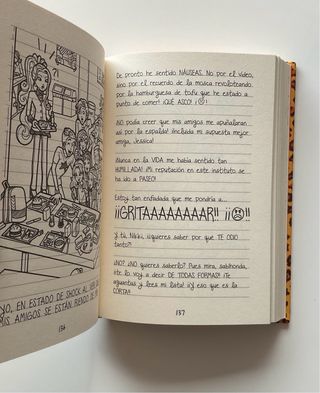 YO, EN ESTADO DE SHOCK AL VER
MIS AMIGOS SE ESTÁN RIENDO DE
136
De pronto he sentido NÁUSEAS. No por el vídeo,
sino por el recuerdo de la mosca revoloteando
por la hamburguesa de tofu que he estado a
punto de comer! ¡QUÉ ASCO! ¡☹!
¡NO podía creer que mis amigos me apuñalaran
así por la espalda! ¡Incluida mi supuesta mejor
amiga, Jessica!
¡Nunca en la VIDA me había sentido tan
HUMILLADA! ¡Mi reputación en este instituto se
ha ido a PASEO!
Estoy tan enfadada que me pondría a...
¡¡GRITAAAAAAAAR!! ¡¡☹!!
Y tú, Nikki, ¿quieres saber por qué TE ODIO
tanto?!
¿NO? ¿NO quieres saberlo? Pues mira, sabihonda,
¡te lo voy a decir DE TODAS FORMAS! ¡Te
aguantas y lees mi lista! ¡¡Y eso que es la
CORTA!!
137